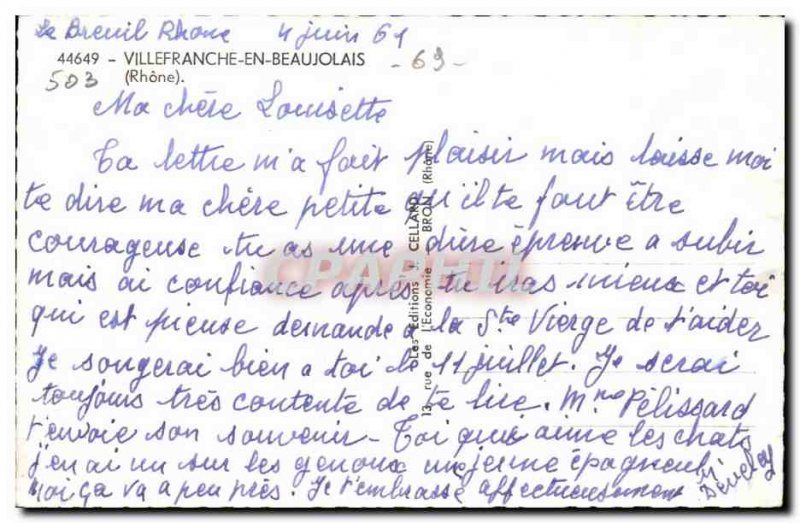 Le Breuil Rhône 4 juin 61
44649 - VILLEFRANCHE-EN-BEAUJOLAIS
(Rhône).
- 69 -
503
Ma chère Louisette
Ta lettre m'a fait plaisir mais laisse moi
te dire ma chère petite qu'il te faut être
courageuse tu as une dure épreuve a subir
mais ai confiance après tu iras mieux et toi
qui est pieuse demande a la Ste Vierge de t'aider
Je songerai bien a toi le 11 juillet. Je serai
toujours très contente de te lire. Mme Pélissard
t'envoie son souvenir - Toi qui aime les chats
j'en ai un sur les genoux un jeune épagneul
moi ça va a peu près. Je t'embrasse affectueusement
Les Editions J. CELLARD
13, rue de l'Economie BRON (Rhône)
CPAPHIL